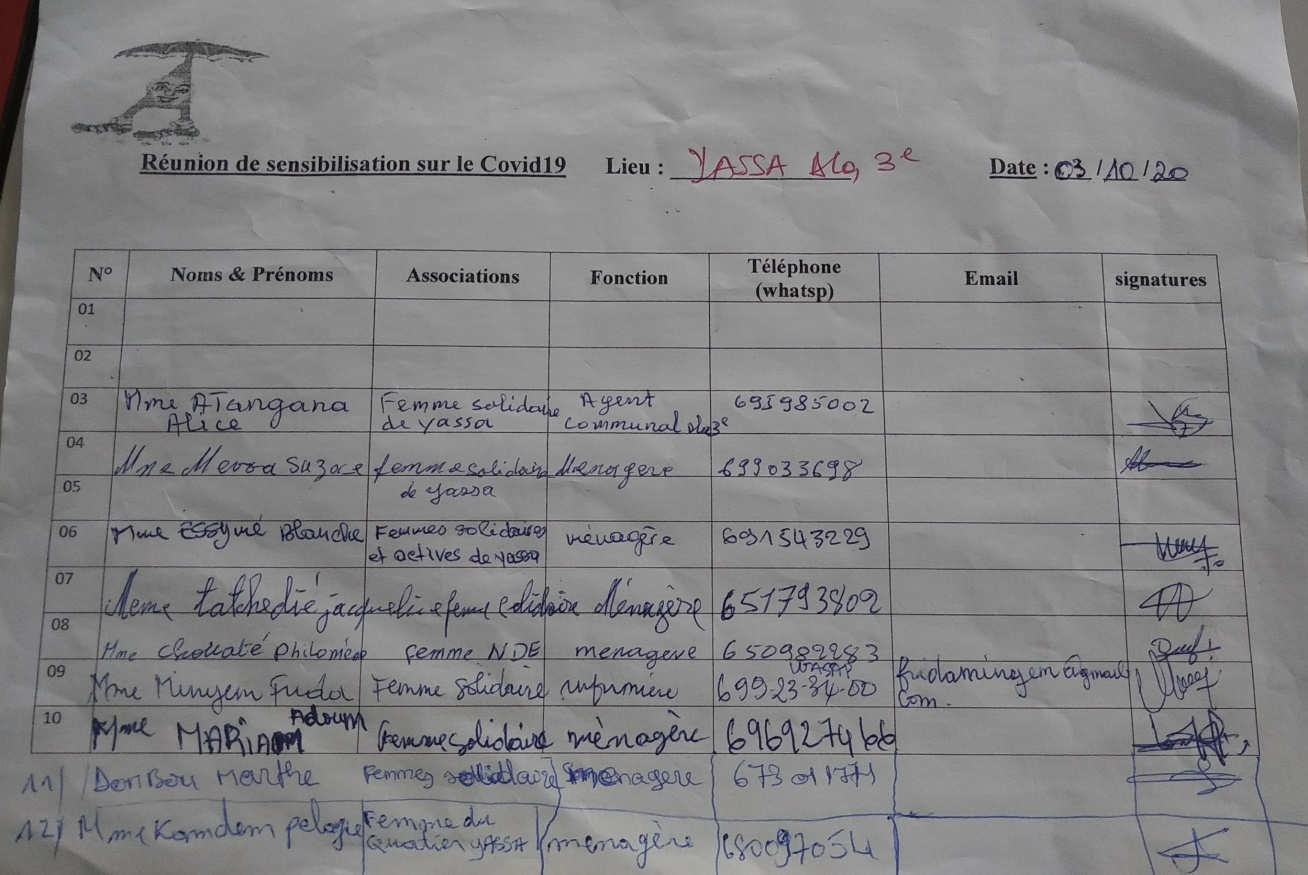 Réunion de sensibilisation sur le Covid19 Lieu : YASSA Dla 3e Date : 03/10/20
N° Noms & Prénoms Associations Fonction Téléphone (whatsp) Email signatures
01
02
03 Mme ATangana Alice Femme solidaire de yassa Agent communal dla3e 695985002
04 Mme Suzace femme solidaire de yassa Menagere 699033698
05
06 Mme ESSymé Blanche Femmes solidaires et actives de yassa ménagère 691543229
07 Meme tatchedié jacqueli e femme solidaire Ménagère 651793802
08 Mme Chouaté philomène femme NDE menagere 650982283
09 Mme Minyem Frida Femme Solidaire infirmière WASAP 699-23-84-00 fridaminyem@gmail com.
10 Mme MARiAM Adoum Femme solidaire ménagère 696927466
11/ DonBou Marthe Femmes solidaire menagere 673011771
12/ Mme Kamdem pelagie Femme du Quatier YASSA menagère 680097054